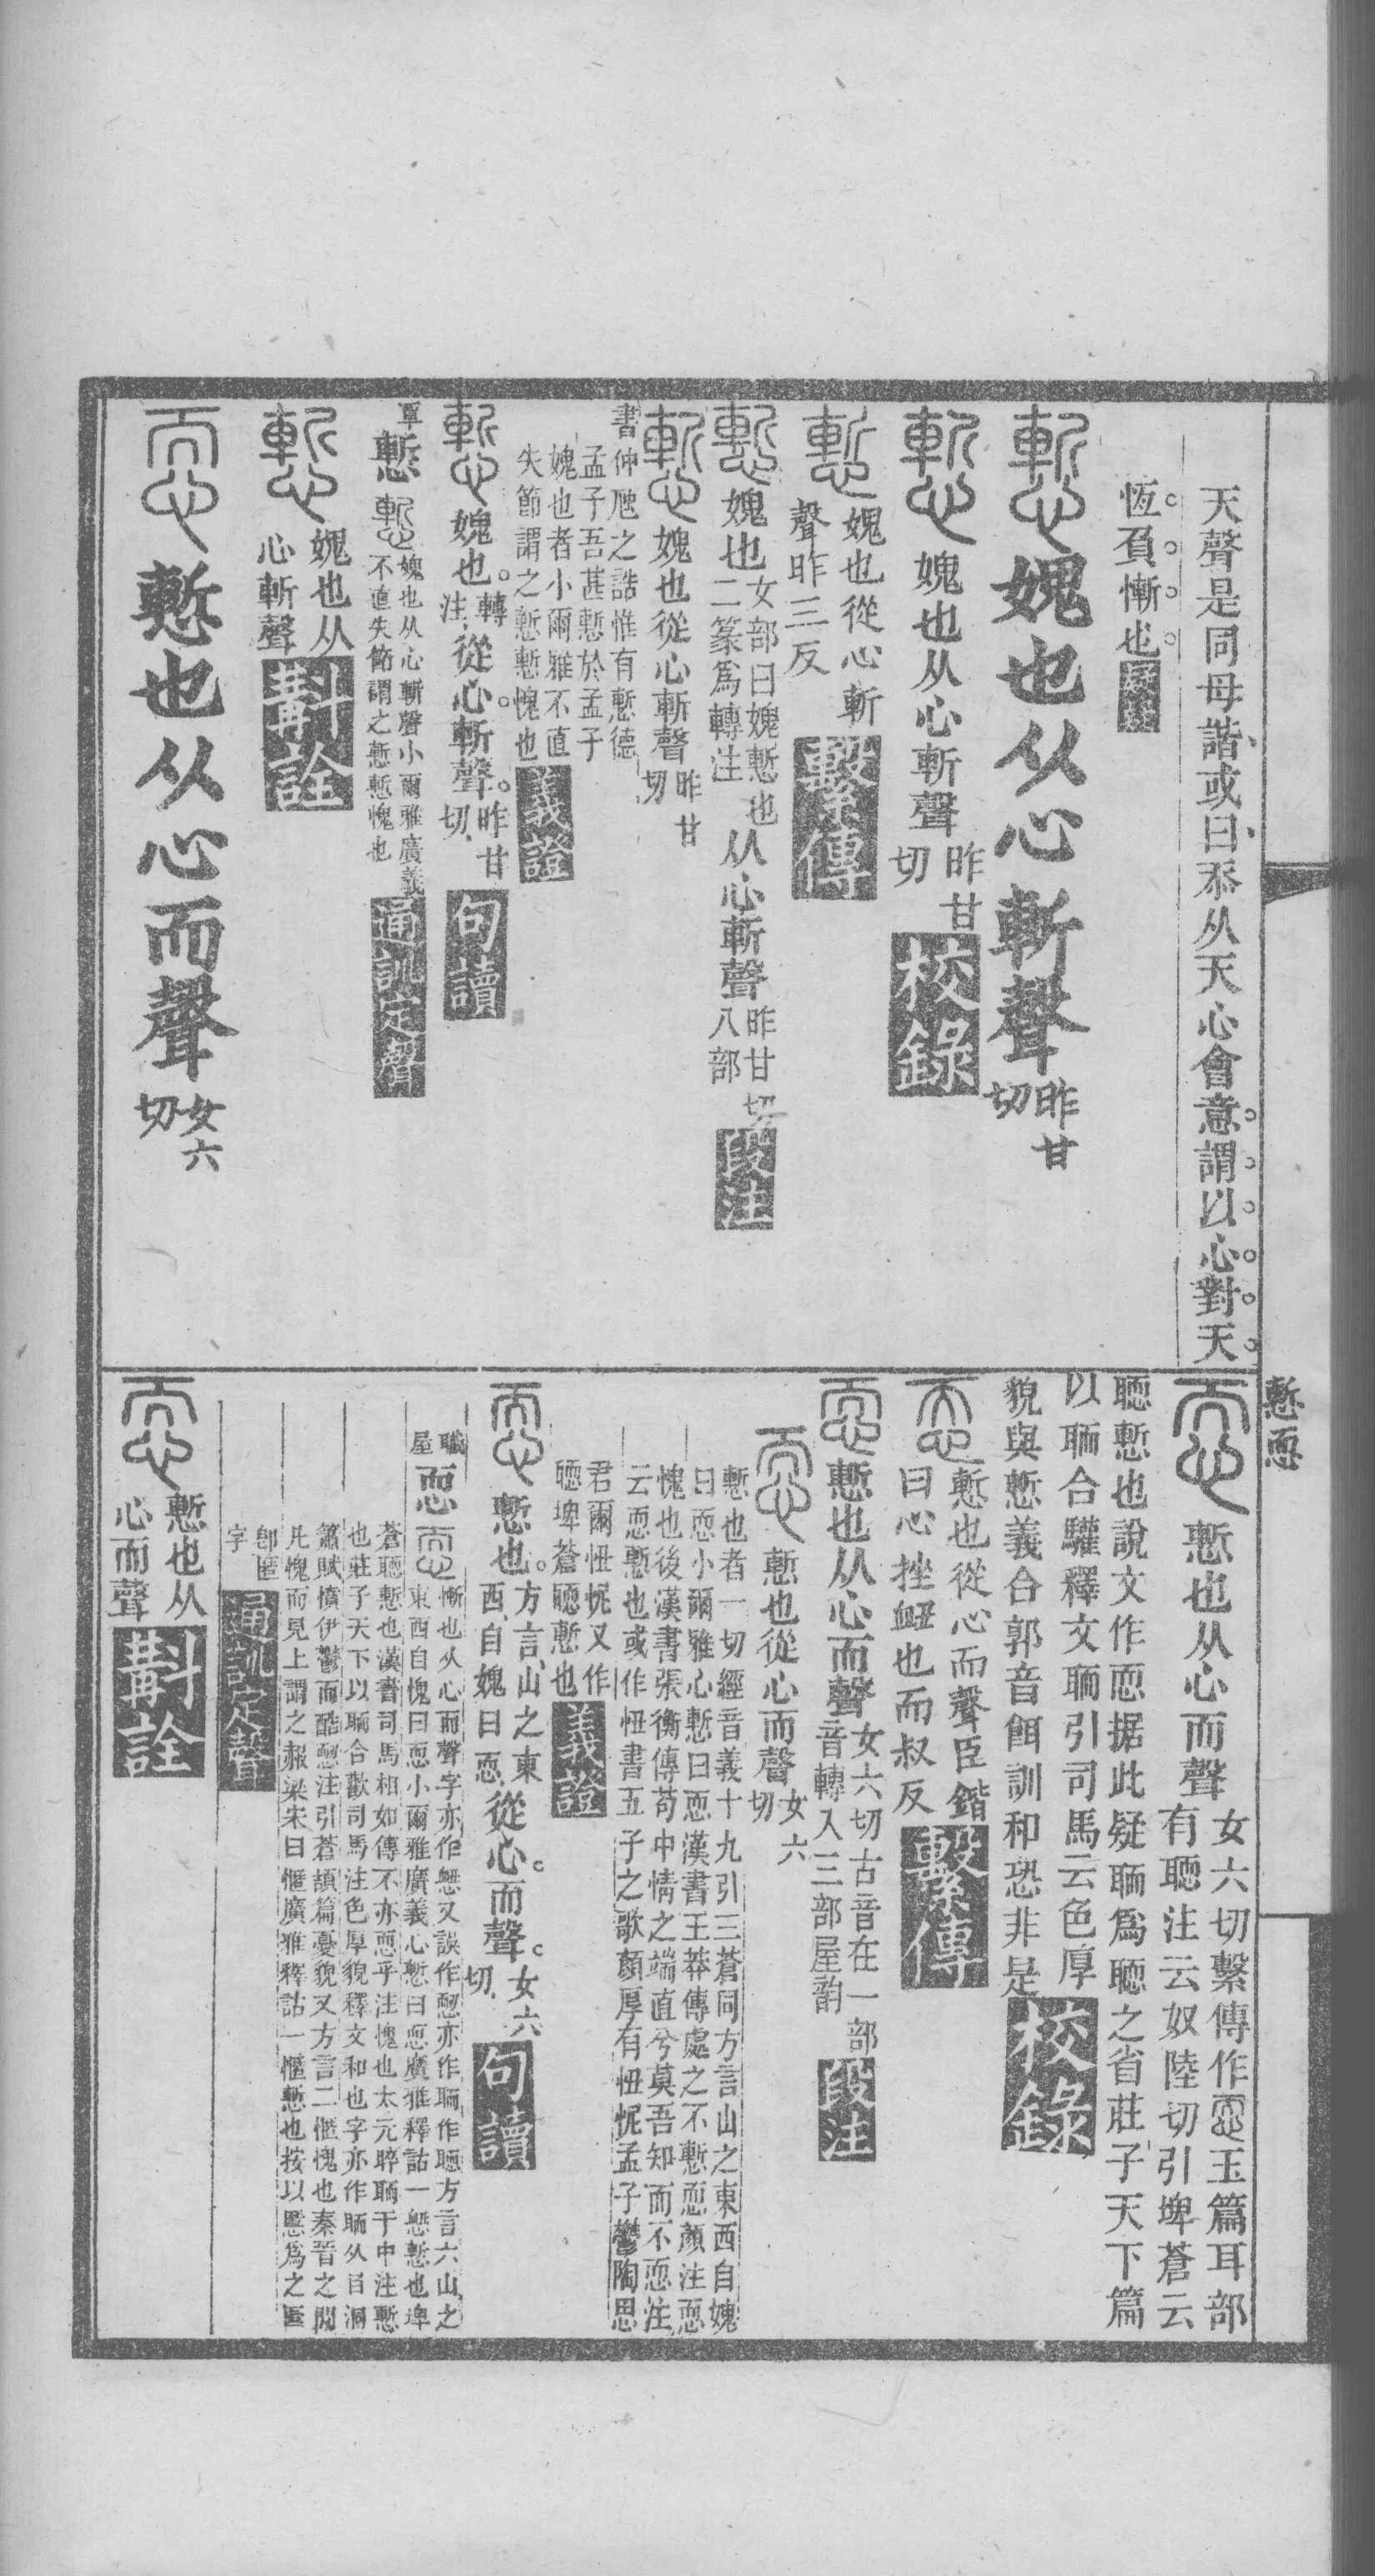 天聲是同母諧或曰忝从天心會意謂以心對天
恆負慚也疑疑
慙 媿也从心斬聲昨甘切
慙 媿也从心斬聲昨甘切校錄
慙 媿也從心斬
聲昨三反繫傳
慙 媿也女部曰媿慙也
二篆爲轉注从心斬聲昨甘切
八部段注
慙 媿也從心斬聲昨甘切
書仲虺之誥惟有慙德
孟子吾甚慙於孟子
媿也者小爾雅不直
失節謂之慙慙愧也義證
慙 媿也轉注從心斬聲昨甘切句讀
慙 媿也从心斬聲小爾雅廣義
不直失節謂之慙慙愧也通訓定聲
慙 媿也从
心斬聲斠詮
恧 慙也从心而聲女六切
慙恧
恧 慙也从心而聲女六切繫傳作恧玉篇耳部
有聏注云奴陸切引埤蒼云
聏慙也說文作恧据此疑聏爲聏之省莊子天下篇
以聏合驩釋文聏引司馬云色厚
貌與慙義合郭音餌訓和恐非是校錄
恧 慙也從心而聲臣鍇
曰心挫衄也而叔反繫傳
恧 慙也从心而聲女六切古音在一部
音轉入三部屋韵段注
恧 慙也從心而聲女六切
慙也者一切經音義十九引三蒼同方言山之東西自媿
曰恧小爾雅心慙曰恧漢書王莽傳處之不慙恧顏注恧
愧也後漢書張衡傳苟中情之端直兮莫吾知而不恧注
云恧慙也或作忸書五子之歌顏厚有忸怩孟子鬱陶思
君爾忸怩又作
聏埤蒼聏慙也義證
恧 慙也方言山之東
西自媿曰恧從心而聲女六切句讀
恧 慚也从心而聲字亦作
東西自愧曰恧小爾雅廣義心慙曰恧廣雅釋詁一
蒼聏慙也漢書司馬相如傳不亦恧乎注愧也太元睟聏于中注慙
也莊子天下以聏合歡司馬注色厚貌釋文和也字亦作聏从目洞
簫賦憤伊鬱而酷注引蒼頡篇憂貌又方言二愧也秦晉之閒
凡愧而見上謂之赧梁宋曰廣雅釋詁一慙也按以爲之
卽匿
字通訓定聲
恧 慙也从
心而聲斠詮